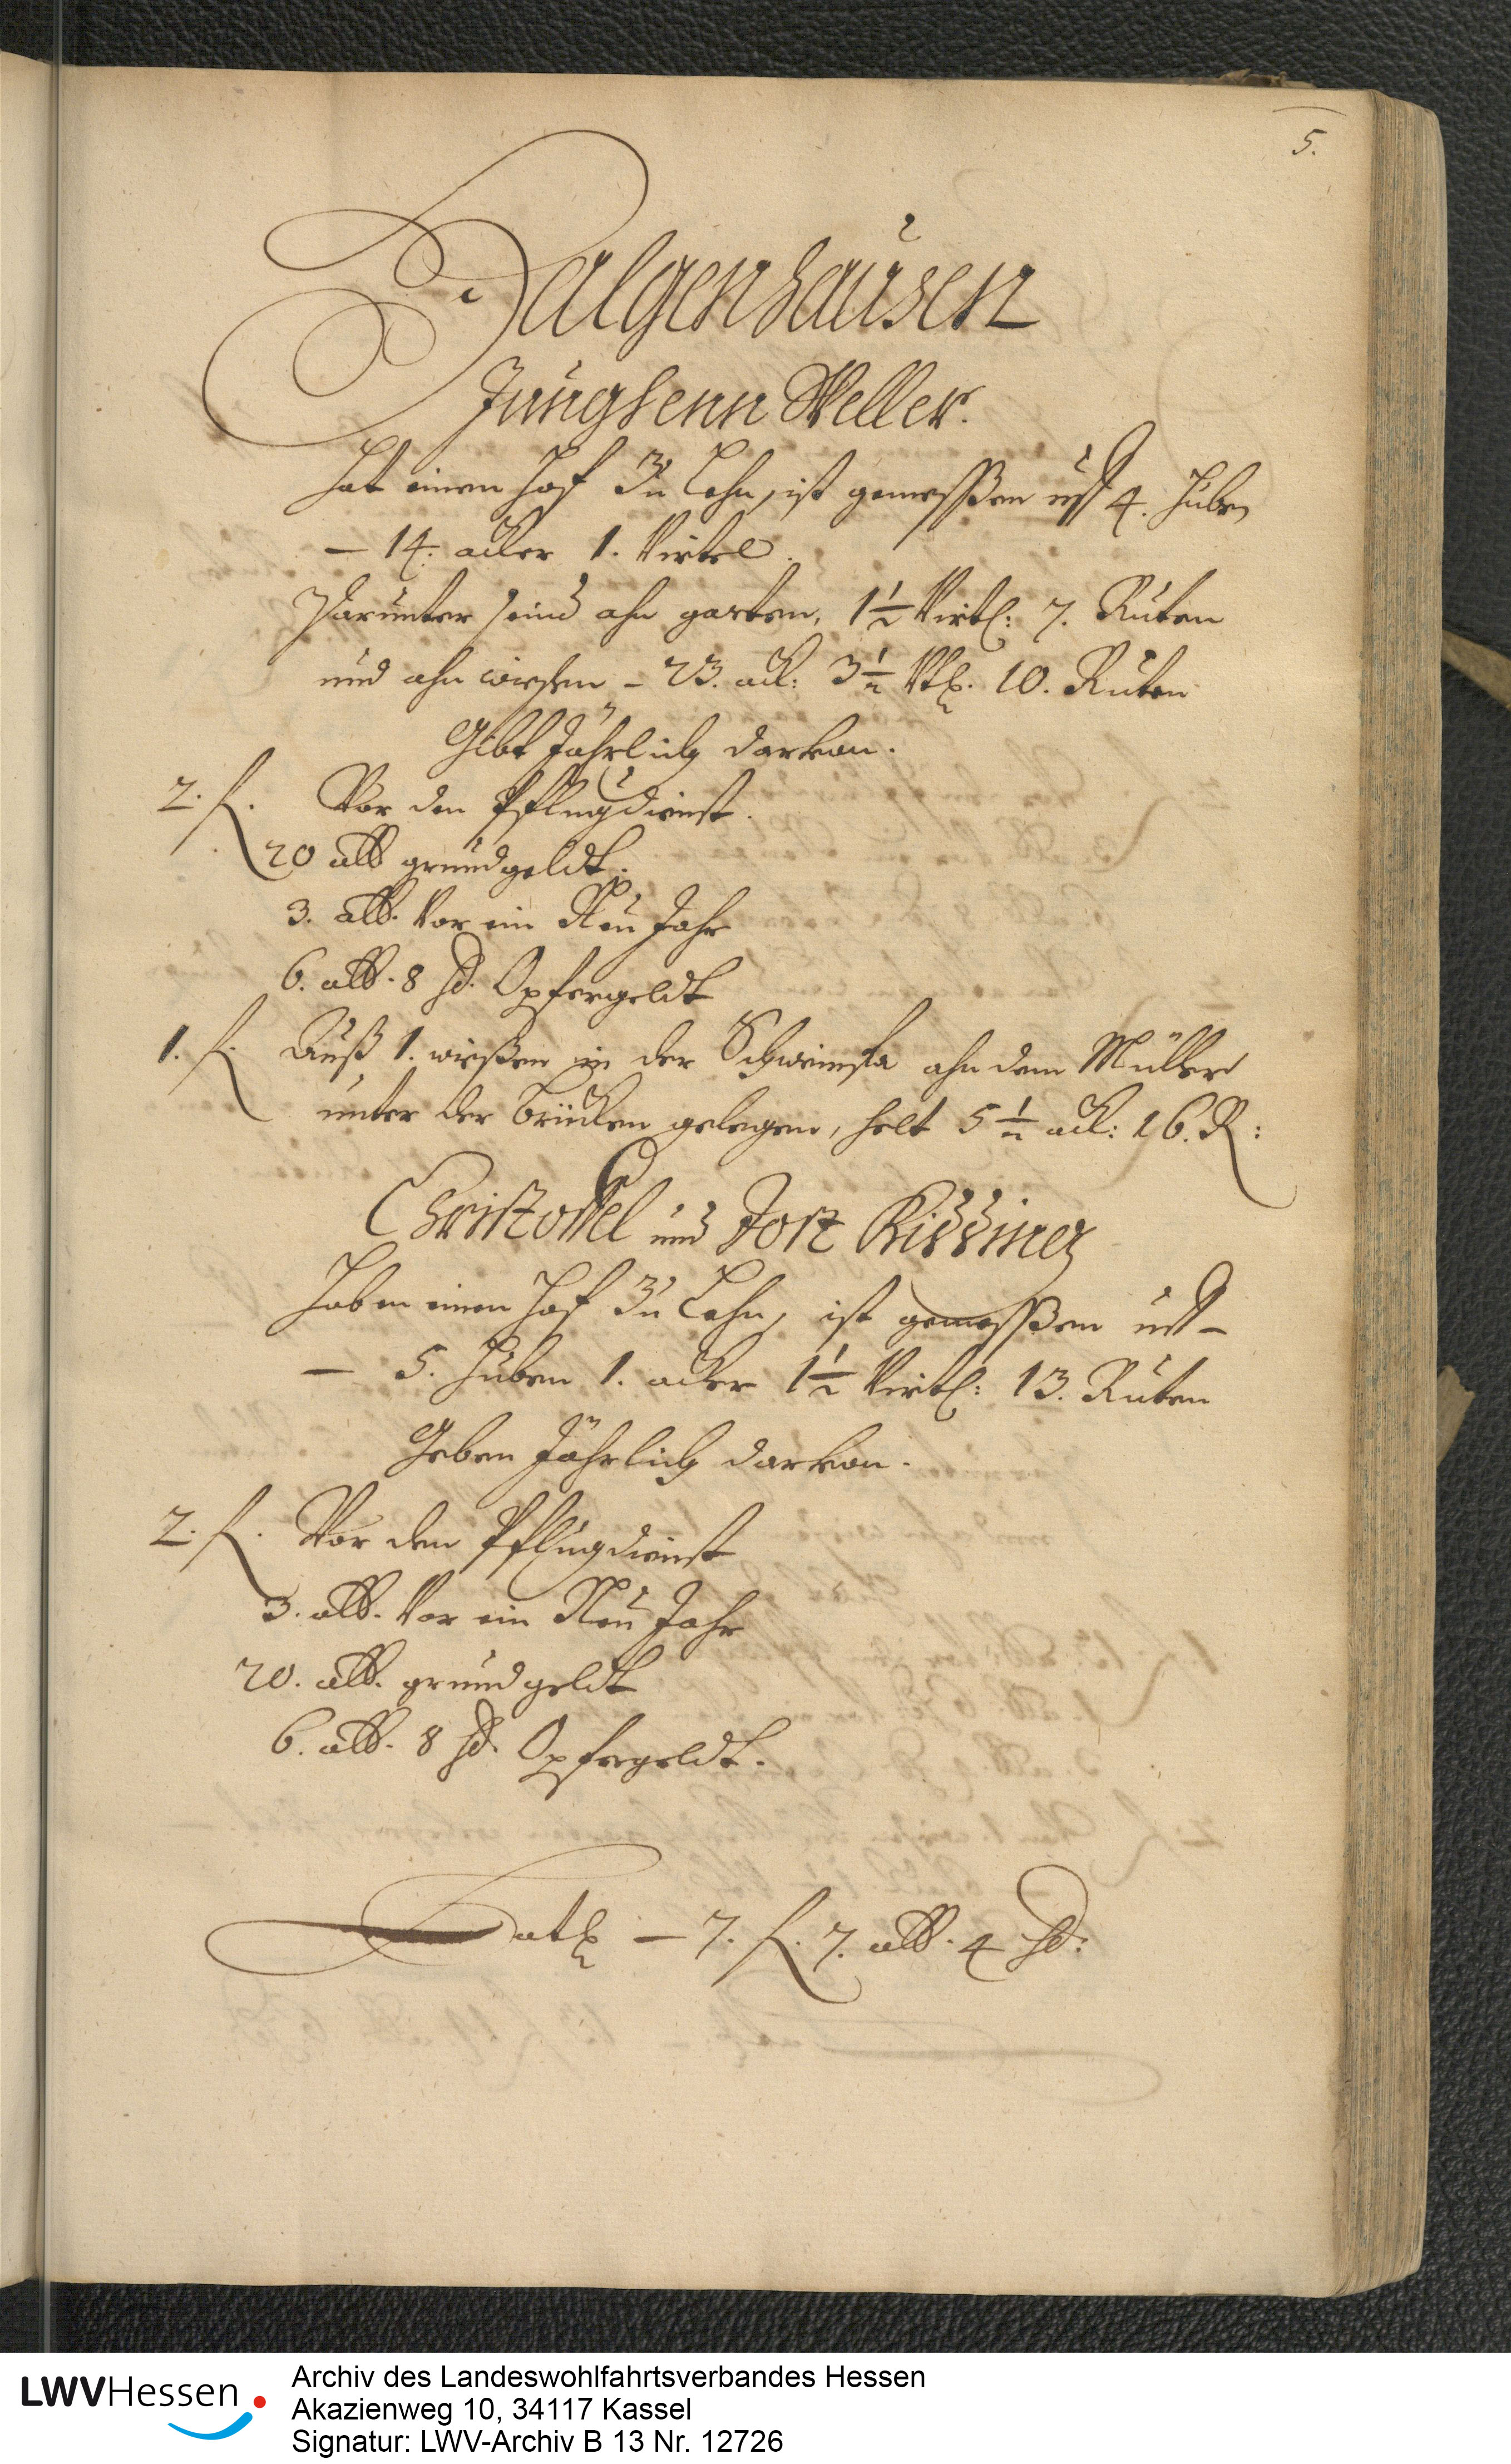 5.
Halgenhausen
Junghenn Weller.
hat einen hof Zu Lehn, ist gemeßßen uff 4. huben
– 14. acker 1. Virtel.
Darunter seind ahn garten, 1 1/2 Virtl: 7. Ruten
und ahn wießen – 23. ack: 3 1/2 Vtl. 10. Ruten
Gibt Jährlich darvon.
2. fl. Vor den Pflugdienst.
20 alb grundgeldt.
3. alb. Vor ein Neu Jahr
6. alb. 8 hl. Opfergeldt
1. fl. Auß 1. wießen in der Schweinsfa ahn dem Müller
unter der brücken gelegen, helt 5 1/2 ack: 16. R:
Christoffel und Jost
Haben einen hof Zu Lehn, ist gemeßßen uff –
– 5. huben 1. acker 1 1/2 Virtl: 13. Ruten
Geben Jährlich darvon.
2. fl. Vor den Pflugdienst
3. alb. Vor ein Neu Jahr
20. alb. grundgeldt
6. alb. 8 hl. Opfergeldt.
Latz – 7. fl. 7. alb. 4 hl:
LWVHessen
Archiv des Landeswohlfahrtsverbandes Hessen
Akazienweg 10, 34117 Kassel
Signatur: LWV-Archiv B 13 Nr. 12726